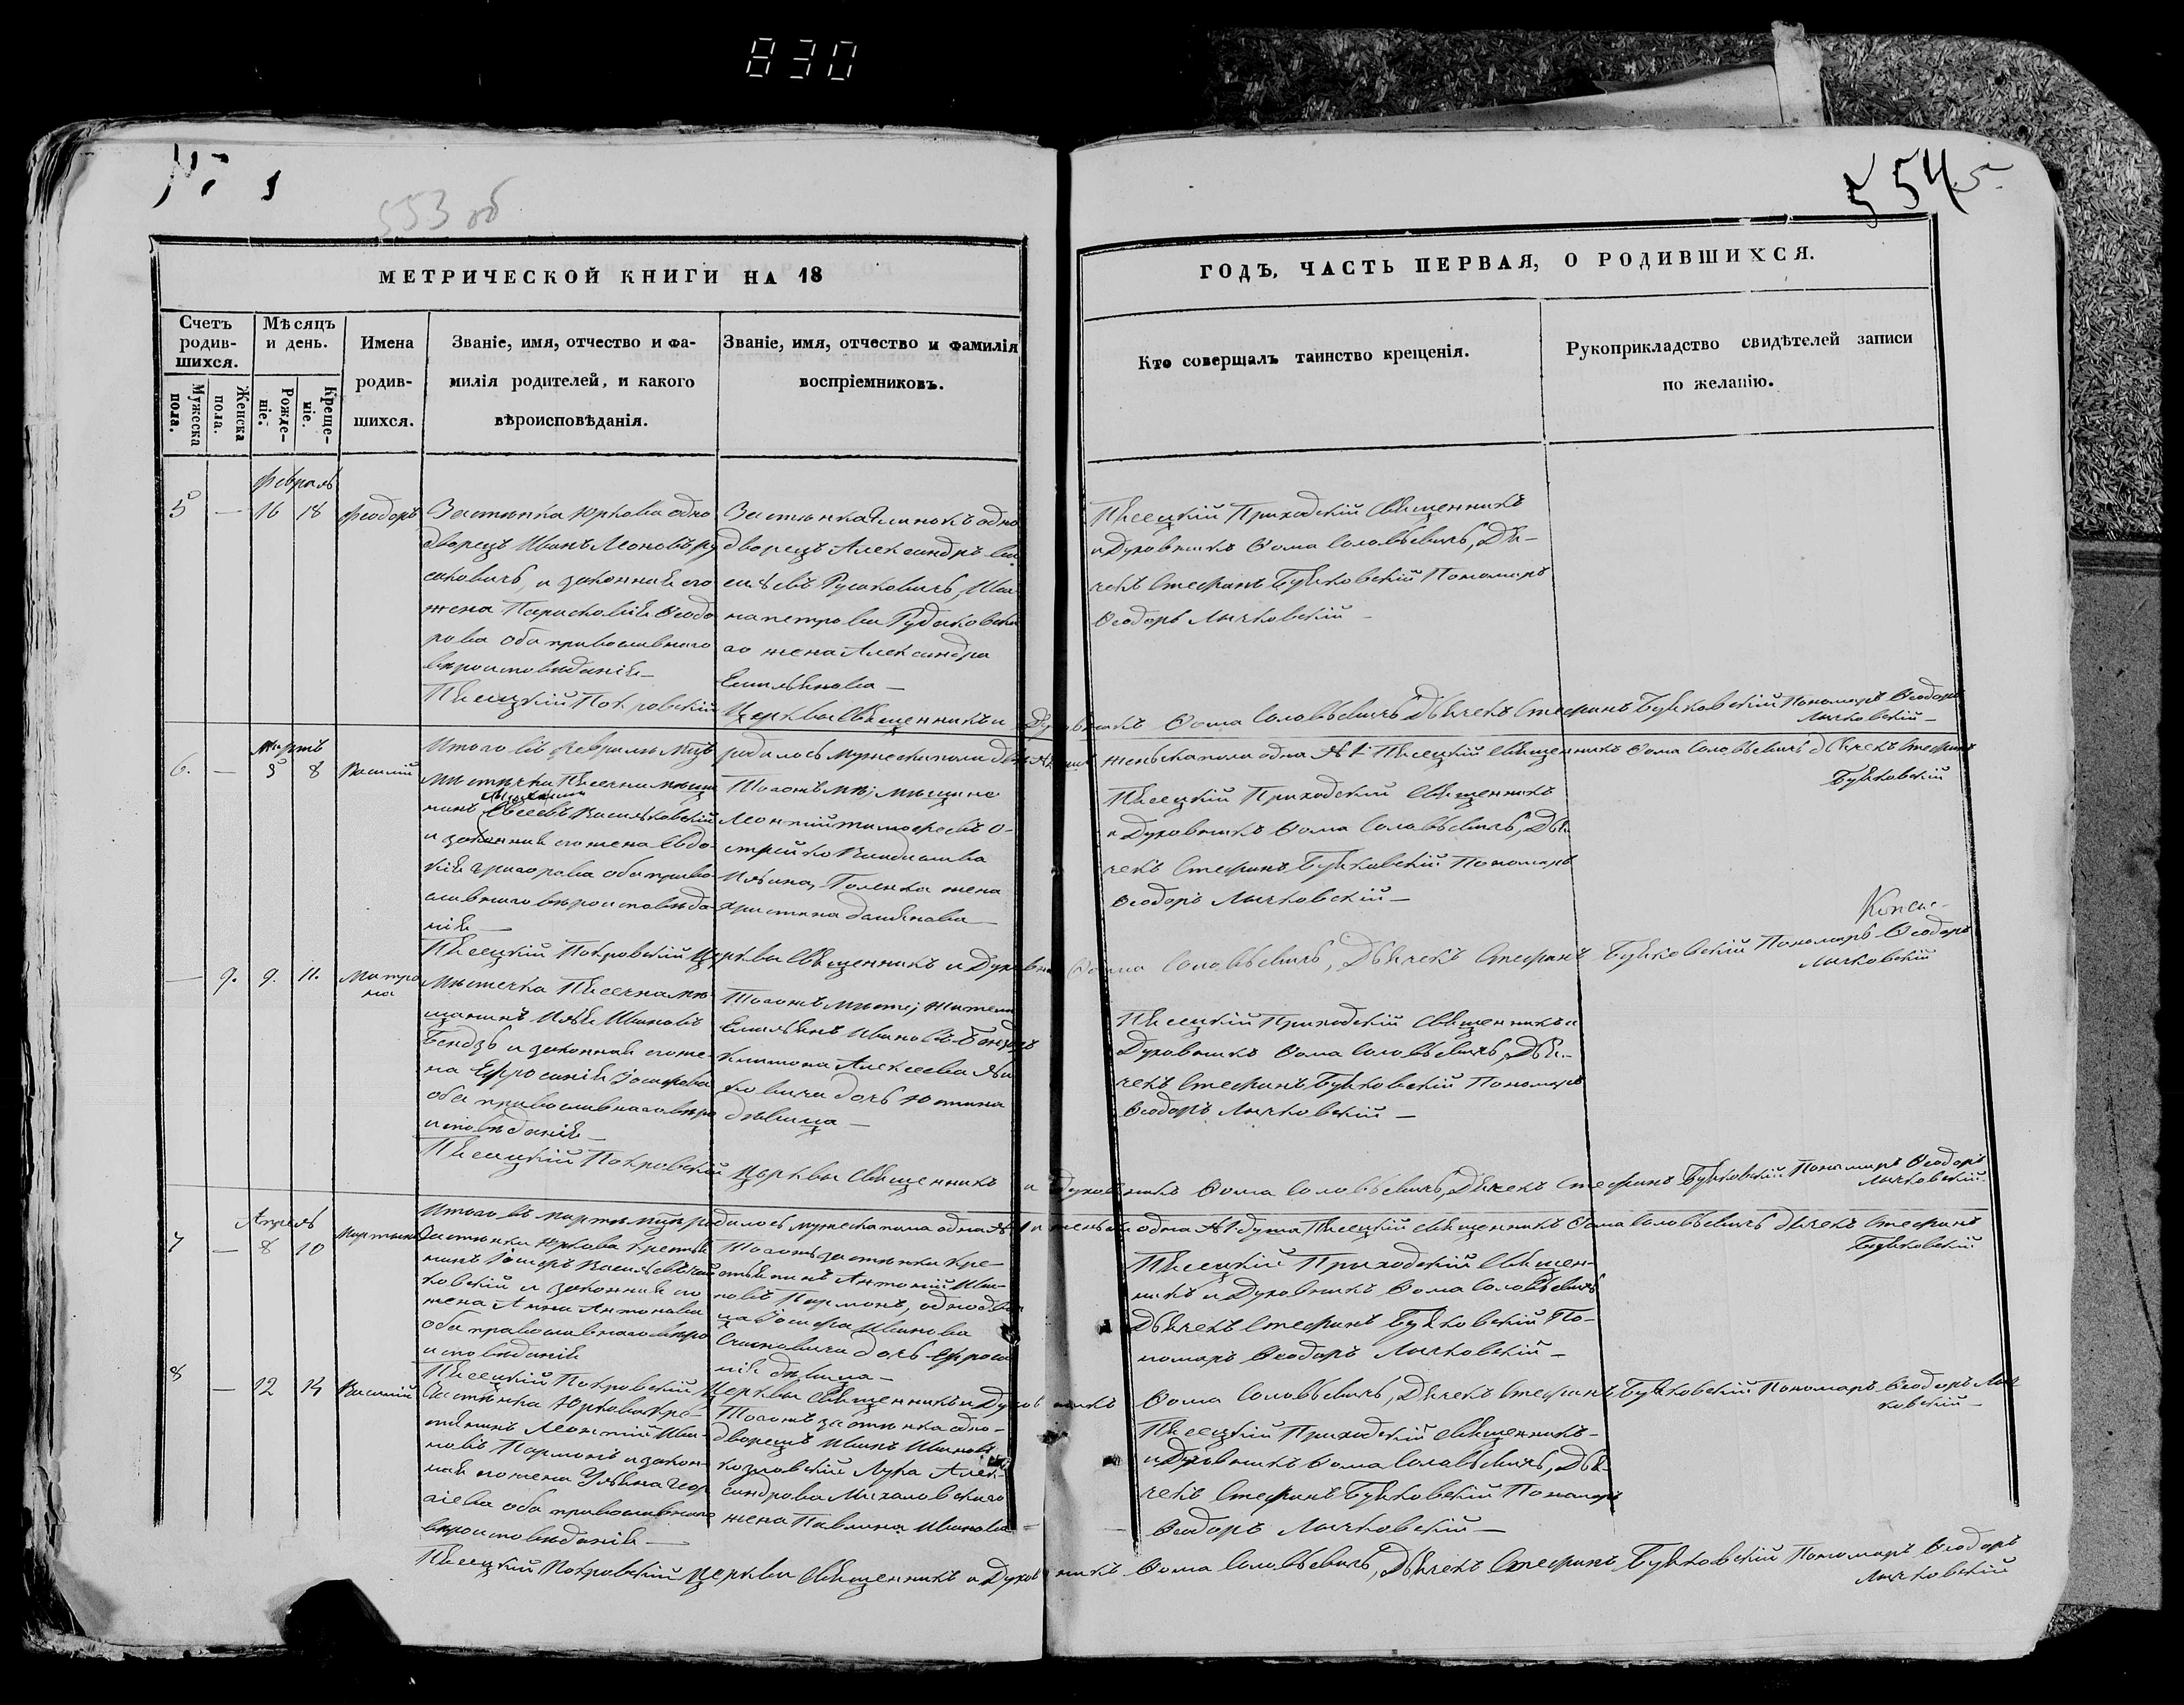 830
№ 1
553 об
554
5
МЕТРИЧЕСКОЙ КНИГИ НА 18
ГОДЪ, ЧАСТЬ ПЕРВАЯ, О РОДИВШИХСЯ.
Счетъ родив-шихся.
Мужеска пола.
Женска пола.
Мѣсяцъ и день.
Рожде-ніе.
Креще-ніе.
Имена
родив-
шихся.
Званіе, имя, отчество и фа-
милія родителей, и какого
вѣроисповѣданія.
Званіе, имя, отчество и фамилія
воспріемниковъ.
Кто совершалъ таинство крещенія.
Рукоприкладство свидѣтелей записи
по желанію.
Февраль
5 — 16 18 Феодоръ
Застѣнка Юркова одно
дворецъ Иванъ Леоновъ Ру
саковичъ, и законная его
жена Парасковія Ѳеодо
рова оба православнаго
вѣроисповѣданія —
Застѣнка одно
дворецъ Александръ Ва
сильевъ Русаковичъ, Ива
на Петрова Рудаковска
го жена Александра
Емельянова —
Пясецкій Приходскій Священникъ
и Духовникъ Ѳома Соловьевичъ, Дья-
чекъ Стефанъ Буяковскій Пономарь
Ѳеодоръ Лычковскій —
Пясецкій Покровскій Церквы Священникъ и Духовникъ Ѳома Соловьевичъ, Дьячекъ Стефанъ Буяковскій Пономарь Ѳеодоръ
Лычковскій —
Итого въ Февралѣ мцѣ родилось мужеска пола женьска пола одна № 1 Пясецкій Священникъ Ѳома Соловьевичъ Дьячекъ Стефанъ
Буяковскій
Мартъ
6. — 5 8 Василій
Мѣстечка Пясечна мѣща
нинъ Евсеевъ Васильковскій
и законная его жена Евдо
кія Григорова оба право
славнаго вѣроисповѣда
нія —
Тогожъ мѣщане
Леонтій Тимофеевъ О-
стрейко
Ильина, жена
Христина Дамьянова —
Пясецкій Приходскій Священникъ
и Духовникъ Ѳома Соловьевичъ, Дья-
чекъ Стефанъ Буяковскій Пономарь
Ѳеодоръ Лычковскій —
Пясецкій Покровскій Церквы Священникъ и Духовникъ Ѳома Соловьевичъ, Дьячекъ Стефанъ Буяковскій Пономарь Ѳеодоръ
Лычковскій
— 9. 9. 11. Матро
на
Мѣстечка Пясечна мѣ
щанинъ Илья Ивановъ
Бендзь и законная его же
на Ефросинія Іосифова
оба православнаго вѣро
исповѣданія —
Тогожъ
Емельянъ Ивановъ
Алексеева
ковича дочь Юстина
дѣвица —
Пясецкій Приходскій Священникъ и
Духовникъ Ѳома Соловьевичъ, Дья-
чекъ Стефанъ Буяковскій Пономарь
Ѳеодоръ Лычковскій —
Пясецкій Покровскій Церквы Священникъ и Духовникъ Ѳома Соловьевичъ, Дьячекъ Стефанъ Буяковскій Пономарь Ѳеодоръ
Лычковскій
Итого въ мартѣ мцѣ родилось мужеска пола одна № 1 и женьска одна № 1 душа Пясецкій Священникъ Ѳома Соловьевичъ Дьячекъ Стефанъ
Буяковскій
Апрель
7 — 8 10
Застѣнка Юркова крестья
нинъ Іосифъ Васильевъ
ковскій и законная его
жена Анна Антонова
оба православнаго вѣро
исповѣданія
Тогожъ застѣнка кре-
стьянинъ Антоній Ива-
новъ Пармонъ, однодвор
ца Іосифа Иванова
дочь Ефроси
нія дѣвица —
Пясецкій Приходскій Священ-
никъ и Духовникъ Ѳома Соловьевичъ
Дьячекъ Стефанъ Буяковскій По-
номарь Ѳеодоръ Лычковскій —
Пясецкій Покровскій Церквы Священникъ и Духовникъ Ѳома Соловьевичъ, Дьячекъ Стефанъ Буяковскій Пономарь Ѳеодоръ Лыч
ковскій —
8 — 12 14 Василій
Застѣнка Юркова кре-
стьянинъ Леонтій Ива-
новъ Пармонъ и закон-
ная его жена Ульяна Геор
гіева оба православнаго
вѣроисповѣданія —
Тогожъ застѣнка одно-
дворецъ Иванъ Ивановъ
Козловскій Лука Алек-
сандрова Михаловскаго
жена Павлина Иванова —
Пясецкій Приходскій Священникъ
и Духовникъ Ѳома Соловьевичъ, Дья-
чекъ Стефанъ Буяковскій Пономарь
Ѳеодоръ Лычковскій —
Пясецкій Покровскій Церквы Священникъ и Духовникъ Ѳома Соловьевичъ, Дьячекъ Стефанъ Буяковскій Пономарь Ѳеодоръ
Лычковскій